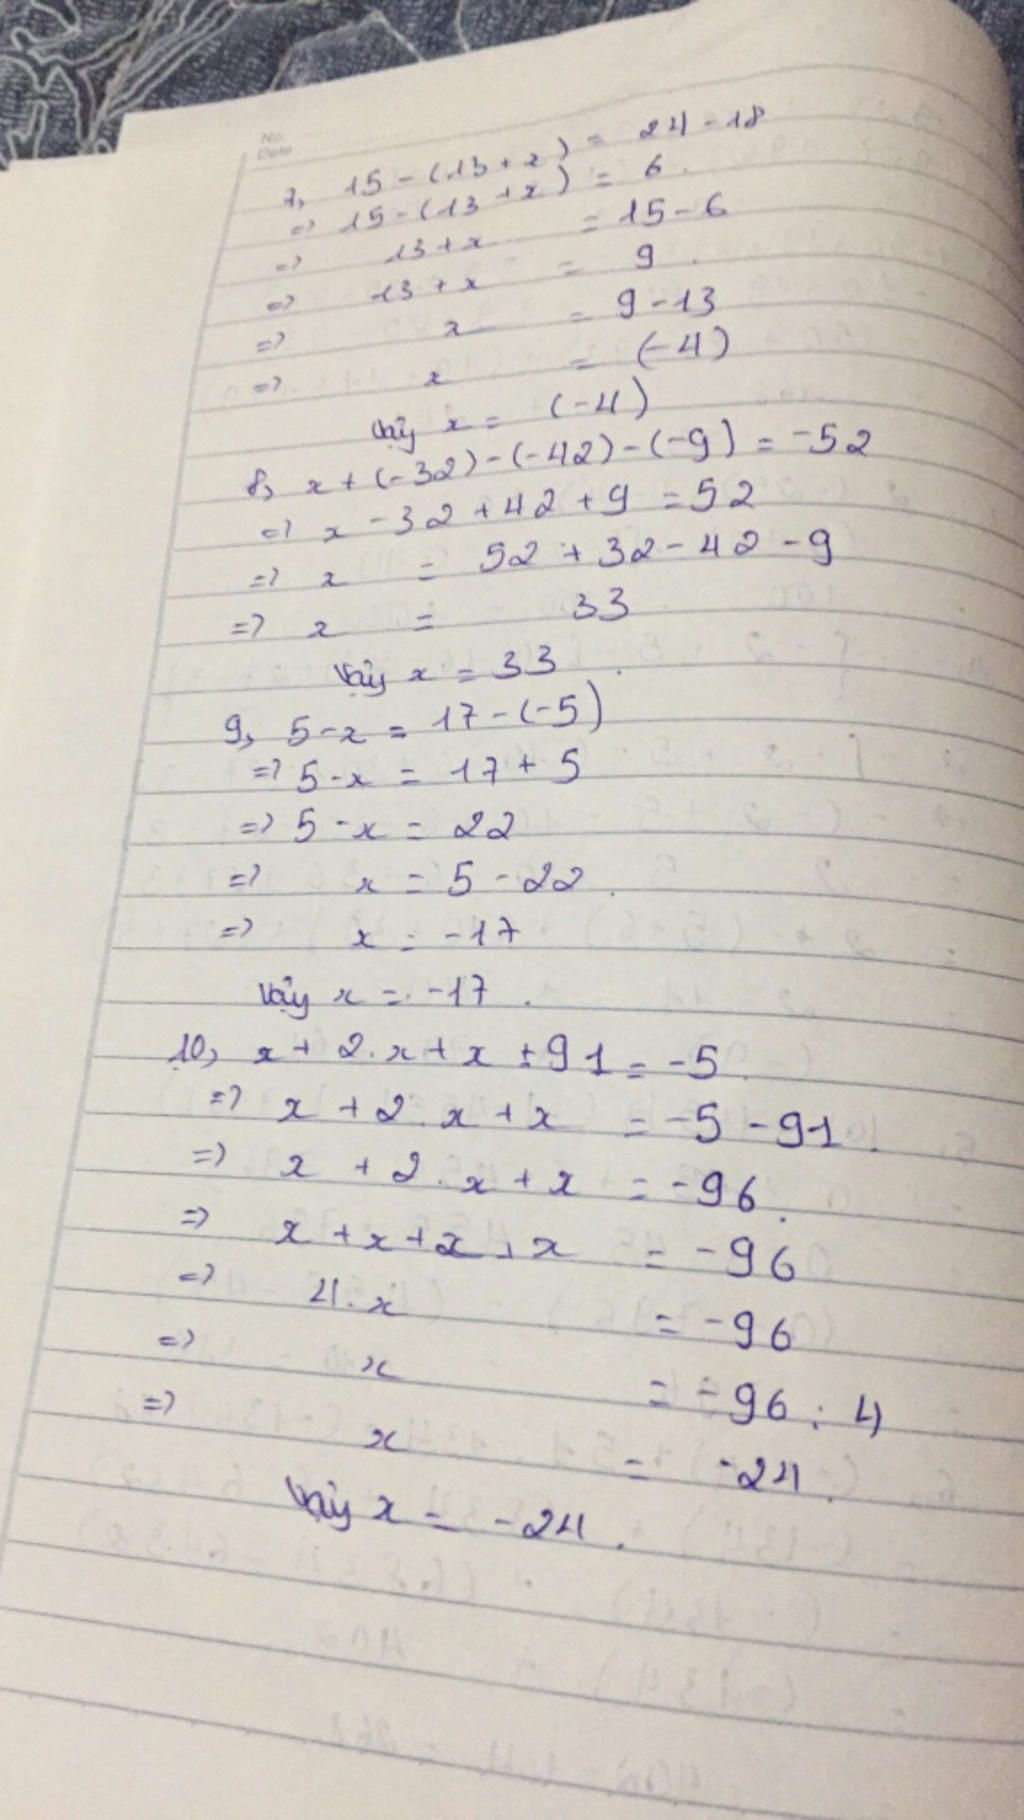 No
Date
7, 15 - (13 + x) = 24 - 18
=> 15 - (13 + x) = 6.
=> 13 + x = 15 - 6
=> 13 + x = 9.
=> x = 9 - 13
=> x = (-4)
Vậy x = (-4)
8, x + (-32) - (-42) - (-9) = -52
=> x - 32 + 42 + 9 = 52
=> x = 52 + 32 - 42 - 9
=> x = 33
Vậy x = 33.
9, 5 - x = 17 - (-5)
=> 5 - x = 17 + 5
=> 5 - x = 22
=> x = 5 - 22.
=> x = -17
Vậy x = -17.
10, x + 2.x + x + 91 = -5
=> x + 2.x + x = -5 - 91.
=> x + 2.x + x = -96.
=> x + x + x + x = -96
=> 4.x = -96
=> x = -96 : 4
=> x = -24.
Vậy x = -24.